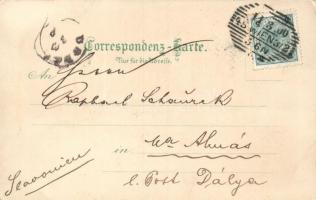 Correspondenz-Karte.
Nur für die Adresse.
An Herrn
Raphael
in Almás
l. Post Dálya
Slavonien
WIEN